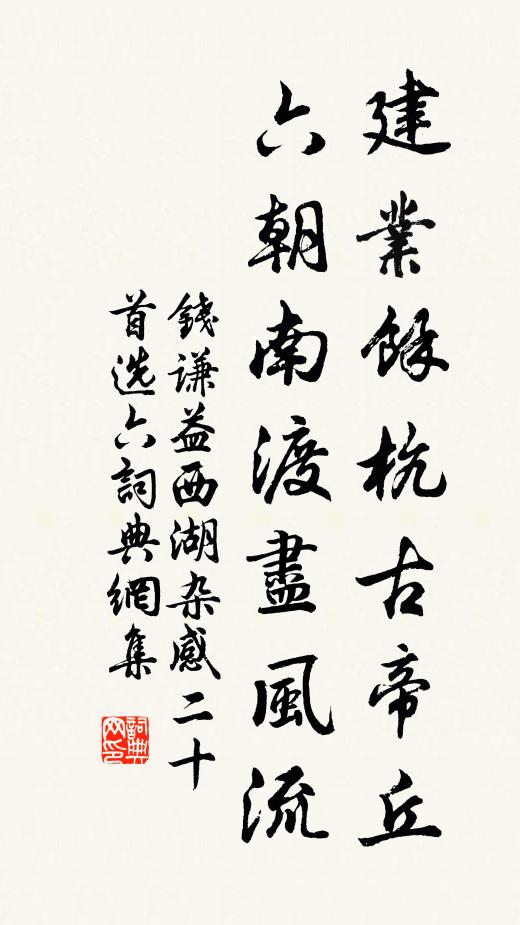 建業餘杭古帝丘
六朝南渡盡風流
錢謙益西湖杂感二十
首选六詞典網集
詞典网印